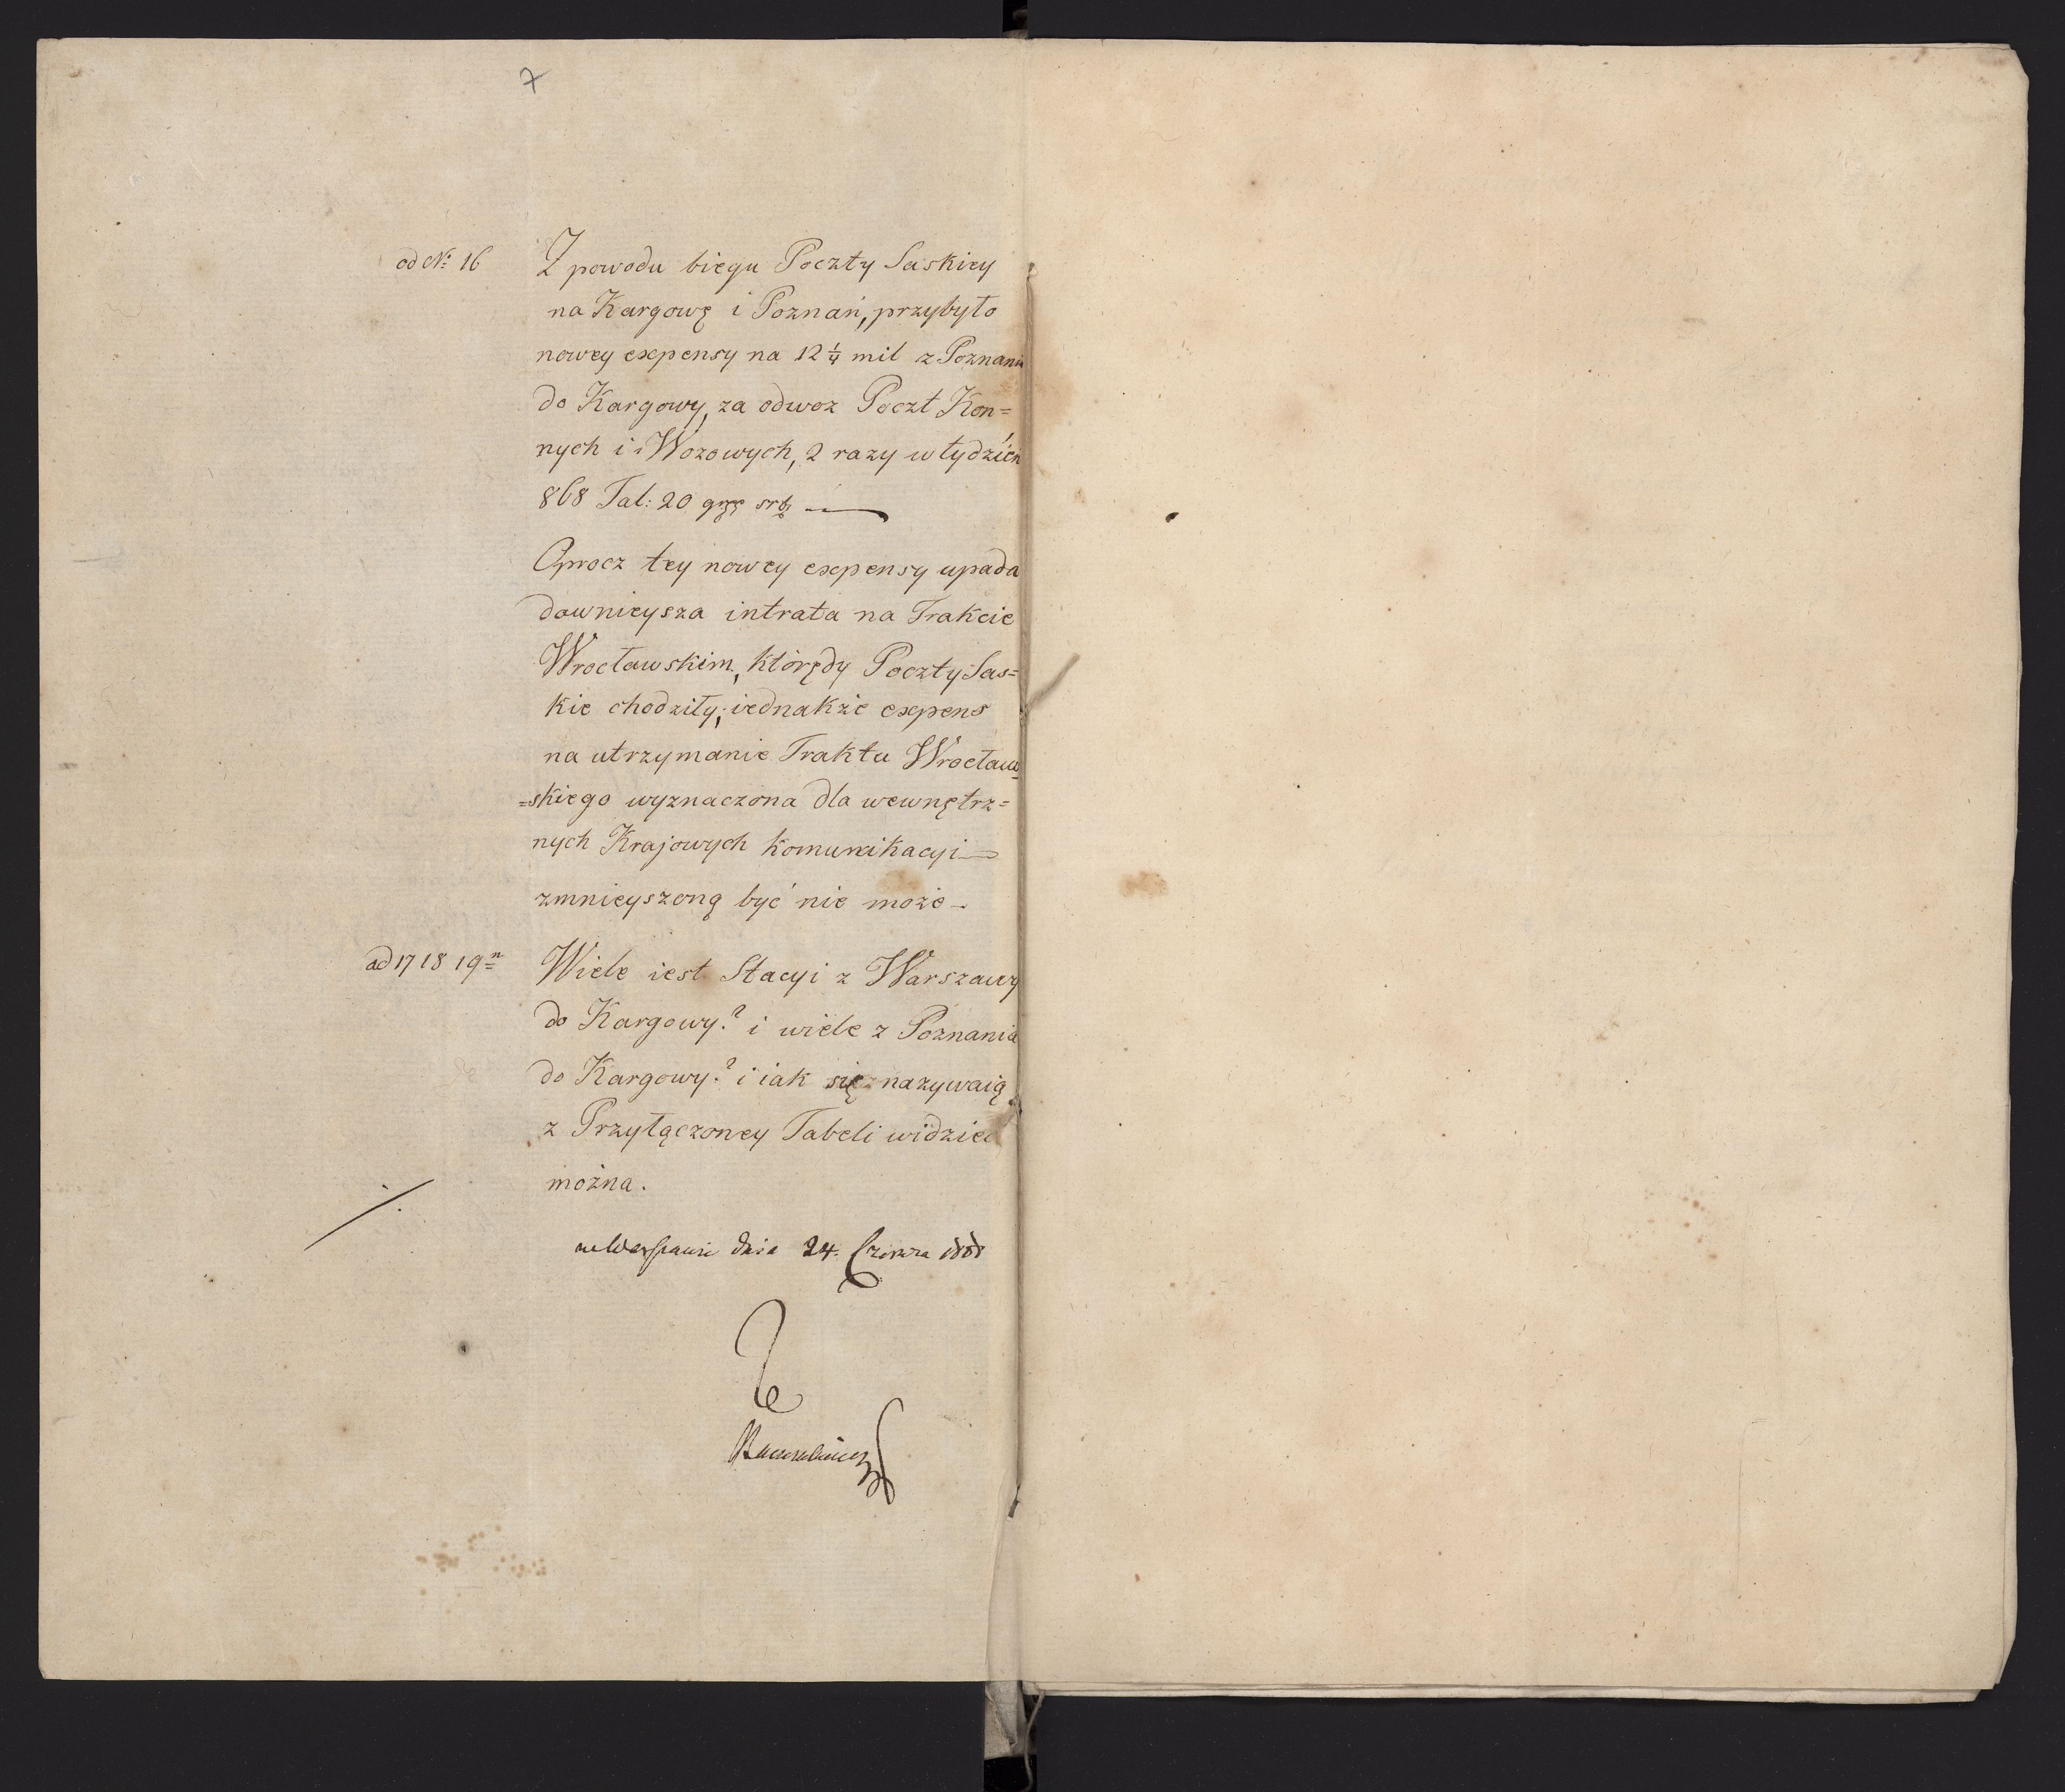 7
ad No: 16
Z powodu biegu Poczty Saskiey
na Kargowę i Poznań, przybyło
nowey expensy na 12 1/4 mil z Poznania
do Kargowy, za odwoz Poczt Kon=
nych i Wozowych, 2 razy w tydzień
868 Tal: 20
Oprocz tey nowey expensy upada
dawnieysza intrata na Trakcie
Wrocławskim, którędy Poczty Sas=
kie chodziły; iednakże expens
na utrzymanie Traktu Wrocław=
=skiego wyznaczona dla wewnętrz=
nych Krajowych komunikacyi
zmnieyszoną być nie może
ad 17 18 19
Wiele iest Stacyi z Warszawy
do Kargowy? i wiele z Poznania
do Kargowy? i iak się nazywaią
z Przyłączoney Tabeli widzieć
można.
w Warszawie dnia 24. Czerwca 1808